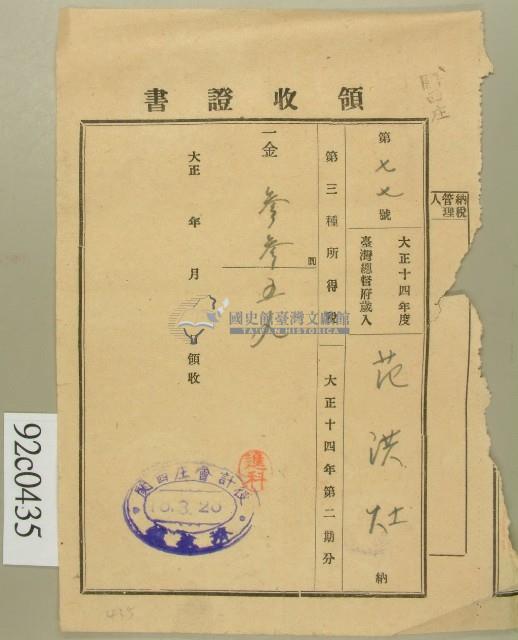 領收證書
第七七號
大正十四年度
臺灣總督府歲入
范洪灶 納
第三種所得稅
大正十四年第二期分
一金 參參五九
圓
大正 年 月 日領收
進科
關西庄會計役
15.3.26
納稅
管理
人
關西庄
國史館臺灣文獻館
TAIWAN HISTORICA
92c0435
435